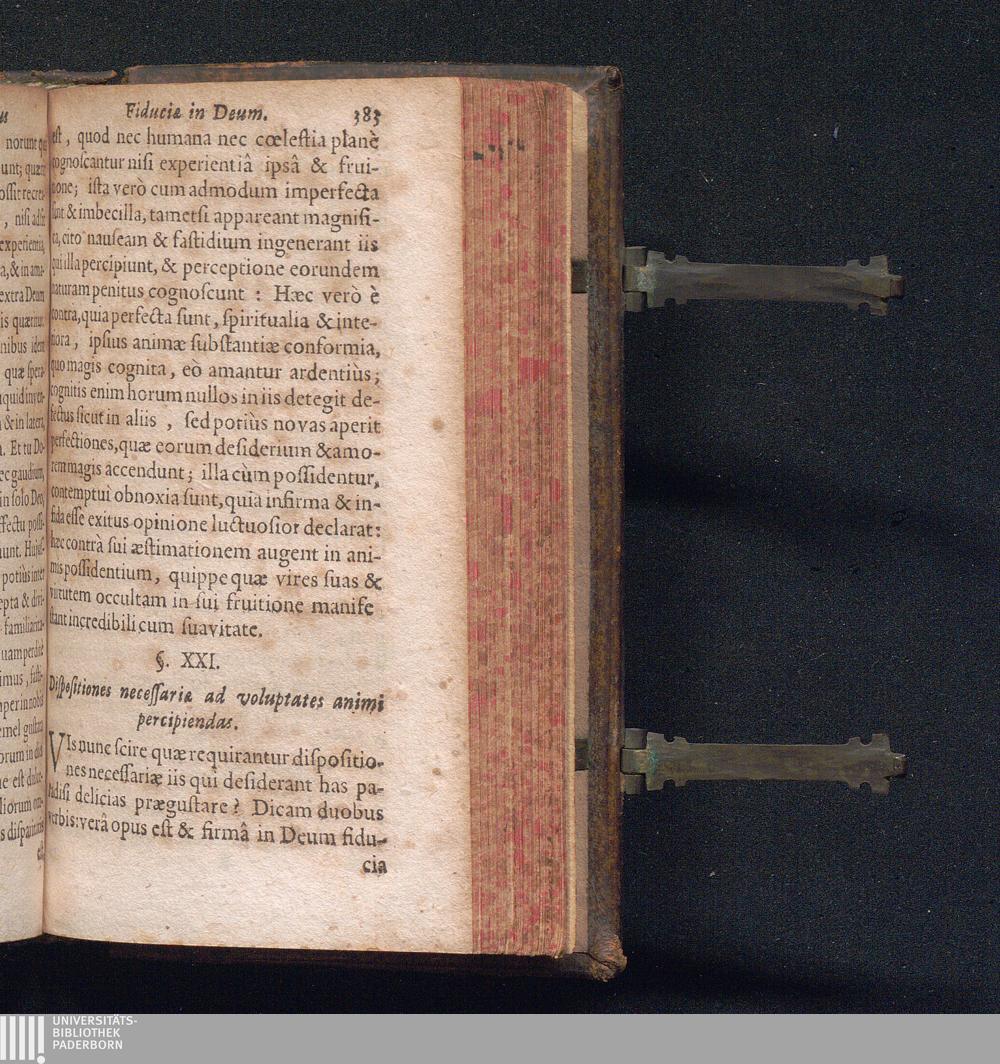 Fiduciæ in Deum. 383
est, quod nec humana nec cœleſtia planè
cognoſcantur niſi experientiâ ipsâ & frui-
tione; iſta verò cum admodum imperfecta
ſint & imbecilla, tametſi appareant magnifi-
ca, cito nauſeam & faſtidium ingenerant iis
qui illa percipiunt, & perceptione eorundem
naturam penitus cognoſcunt : Hæc verò è
contra, quia perfecta ſunt, ſpiritualia & inte-
riora, ipſius animæ ſubſtantiæ conformia,
quo magis cognita, eò amantur ardentiùs;
cognitis enim horum nullos in iis detegit de-
fectus ſicut in aliis , ſed potiùs novas aperit
perfectiones, quæ eorum deſiderium & amo-
rem magis accendunt; illa cùm poſſidentur,
contemptui obnoxia ſunt, quia infirma & in-
fida eſſe exitus opinione luctuoſior declarat:
hæc contrà ſui æſtimationem augent in ani-
mis poſſidentium, quippe quæ vires ſuas &
virtutem occultam in ſui fruitione manife
ſtant incredibili cum ſuavitate.
§. XXI.
Diſpoſitiones neceſſariæ ad voluptates animi
percipiendas.
VIs nunc ſcire quæ requirantur diſpoſitio-
nes neceſſariæ iis qui deſiderant has pa-
radiſi delicias præguſtare? Dicam duobus
verbis: verâ opus eſt & firmâ in Deum fidu-
cia
UNIVERSITÄTS-
BIBLIOTHEK
PADERBORN